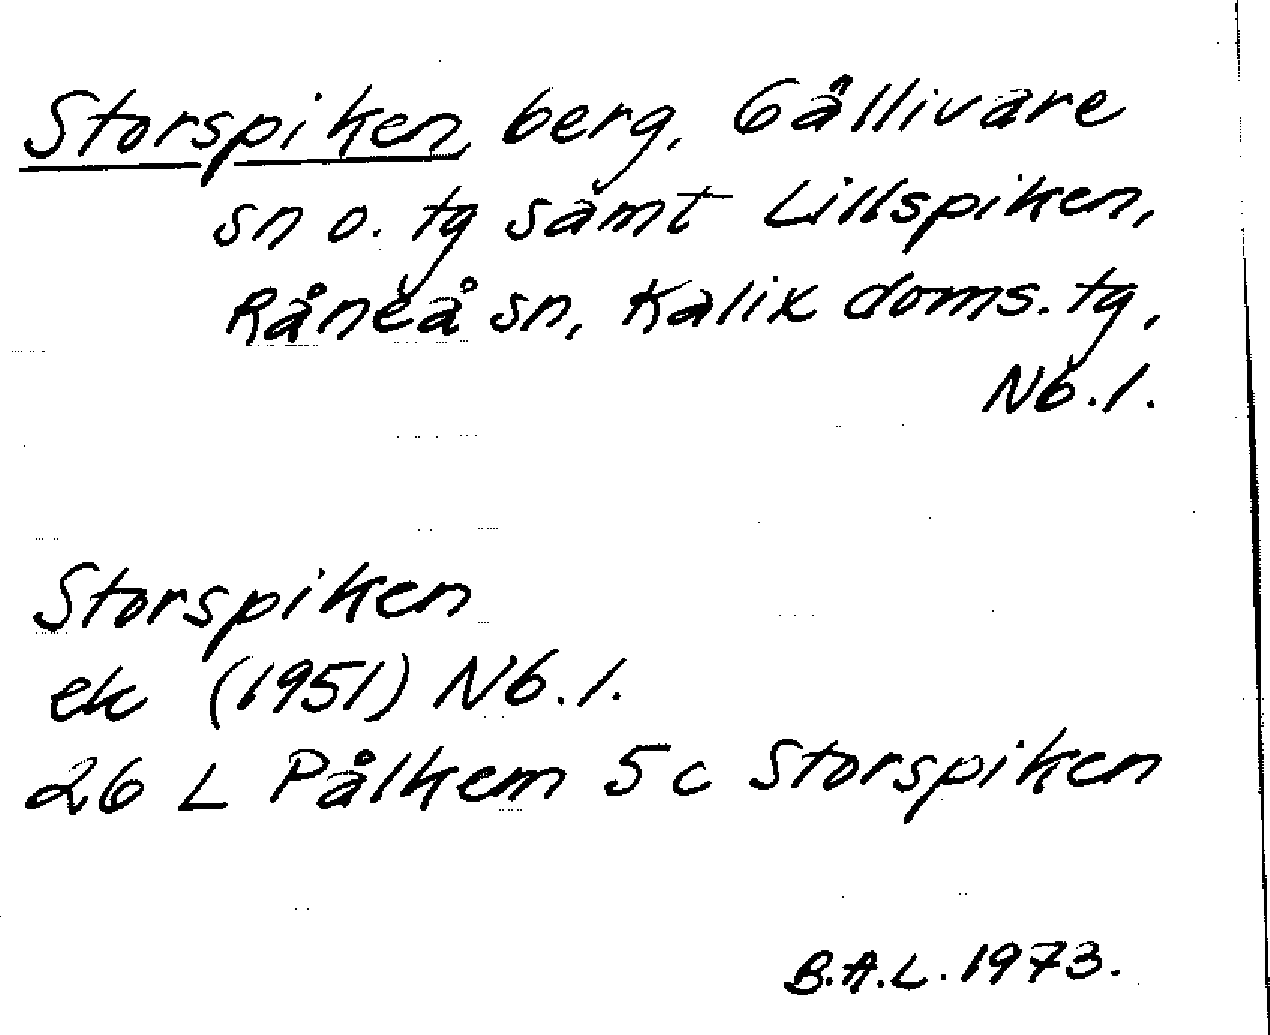 Storspiken, berg, Gällivare
sn o. tg samt Lillspiken,
Råneå sn, Kalix doms. tg,
Nb. l.
Storspiken
ek (1951) Nb. l.
26 L Pålkem 5 c Storspiken
B.A.L. 1973.